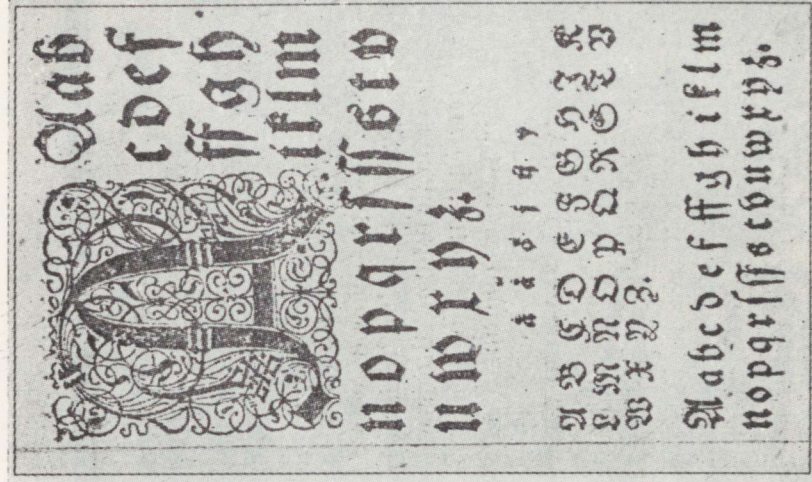 Aab
c d e f
ff g h
i k l m
n o p q r ſ ſſ s t v
u w x y z.
A B C D E F G H I K
L M N O P Q R S T V
W X Y Z.
A a b c d e f ff g h i k l m
n o p q r ſ ſſ s t v u w x y z.